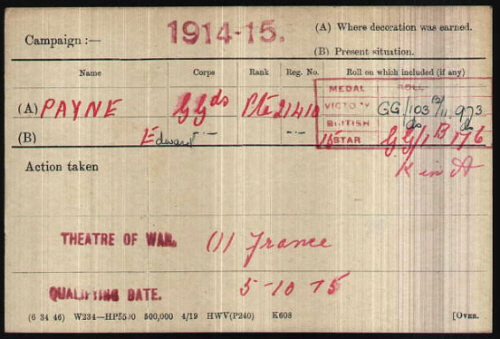 Campaign :— 1914-15.
(A) Where decoration was earned.
(B) Present situation.
Name Corps Rank Reg. No. Roll on which included (if any)
MEDAL ROLL
(A) PAYNE G Gds Pte 21410 VICTORY GG/103 B/11, 973
(B) Edward —"— BRITISH do do
15 STAR G G/1 B 176
Action taken K in A
THEATRE OF WAR. (1) France
QUALIFYING DATE. 5-10-15
(6 34 46) W234—HP5590 500,000 4/19 HWV(P240) K608 [OVER.